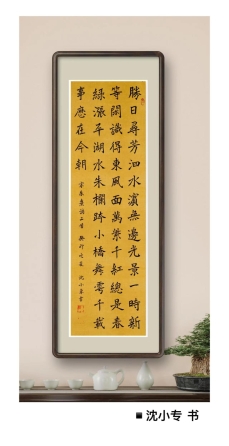 勝日尋芳泗水濱無邊光景一時新
等閑識得東風面萬紫千紅總是春
緑漲平湖水朱欄跨小橋舞雩千載
事歷在今朝
宋朱熹詩二首 沈小專書
■ 沈小专 书